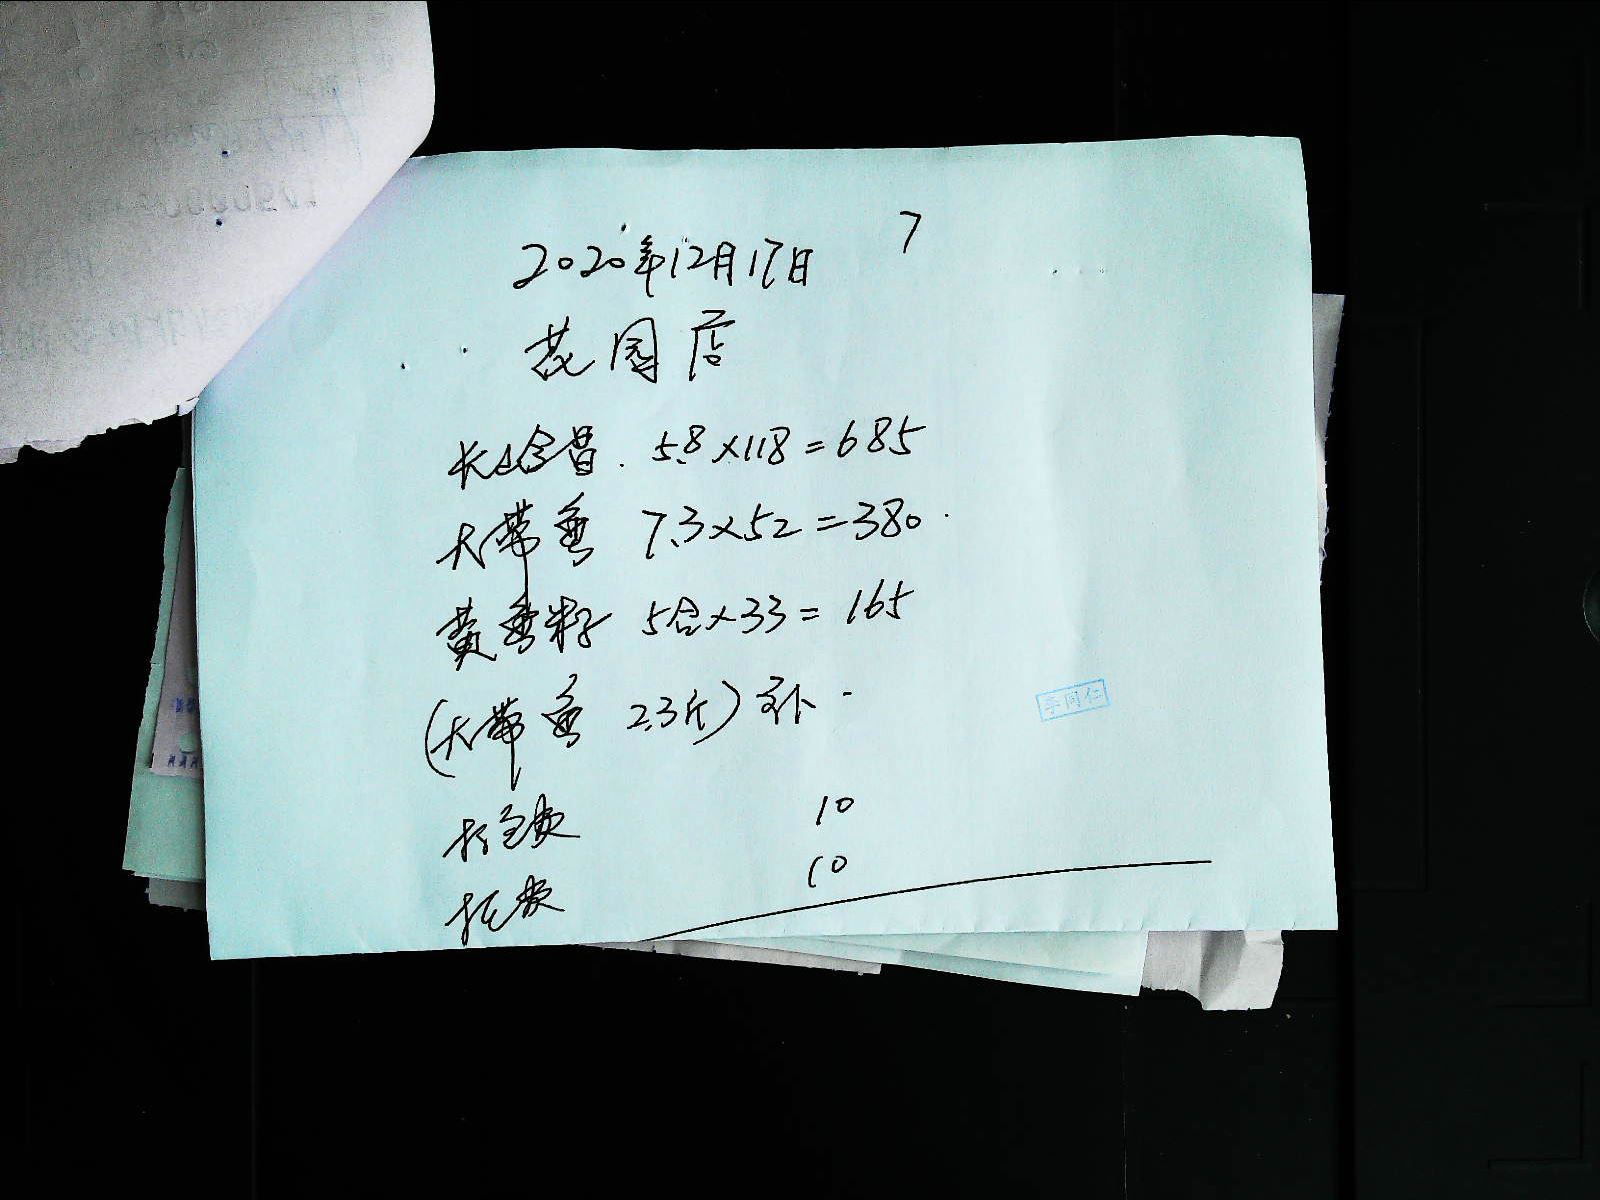 7
2020年12月17日
花园店
长山鲳 5.8×118=685
大带鱼 7.3×52=380
黄鱼籽 5合×33=165
(大带鱼 2.3斤)补
打包费 10
托费 10
李同仁